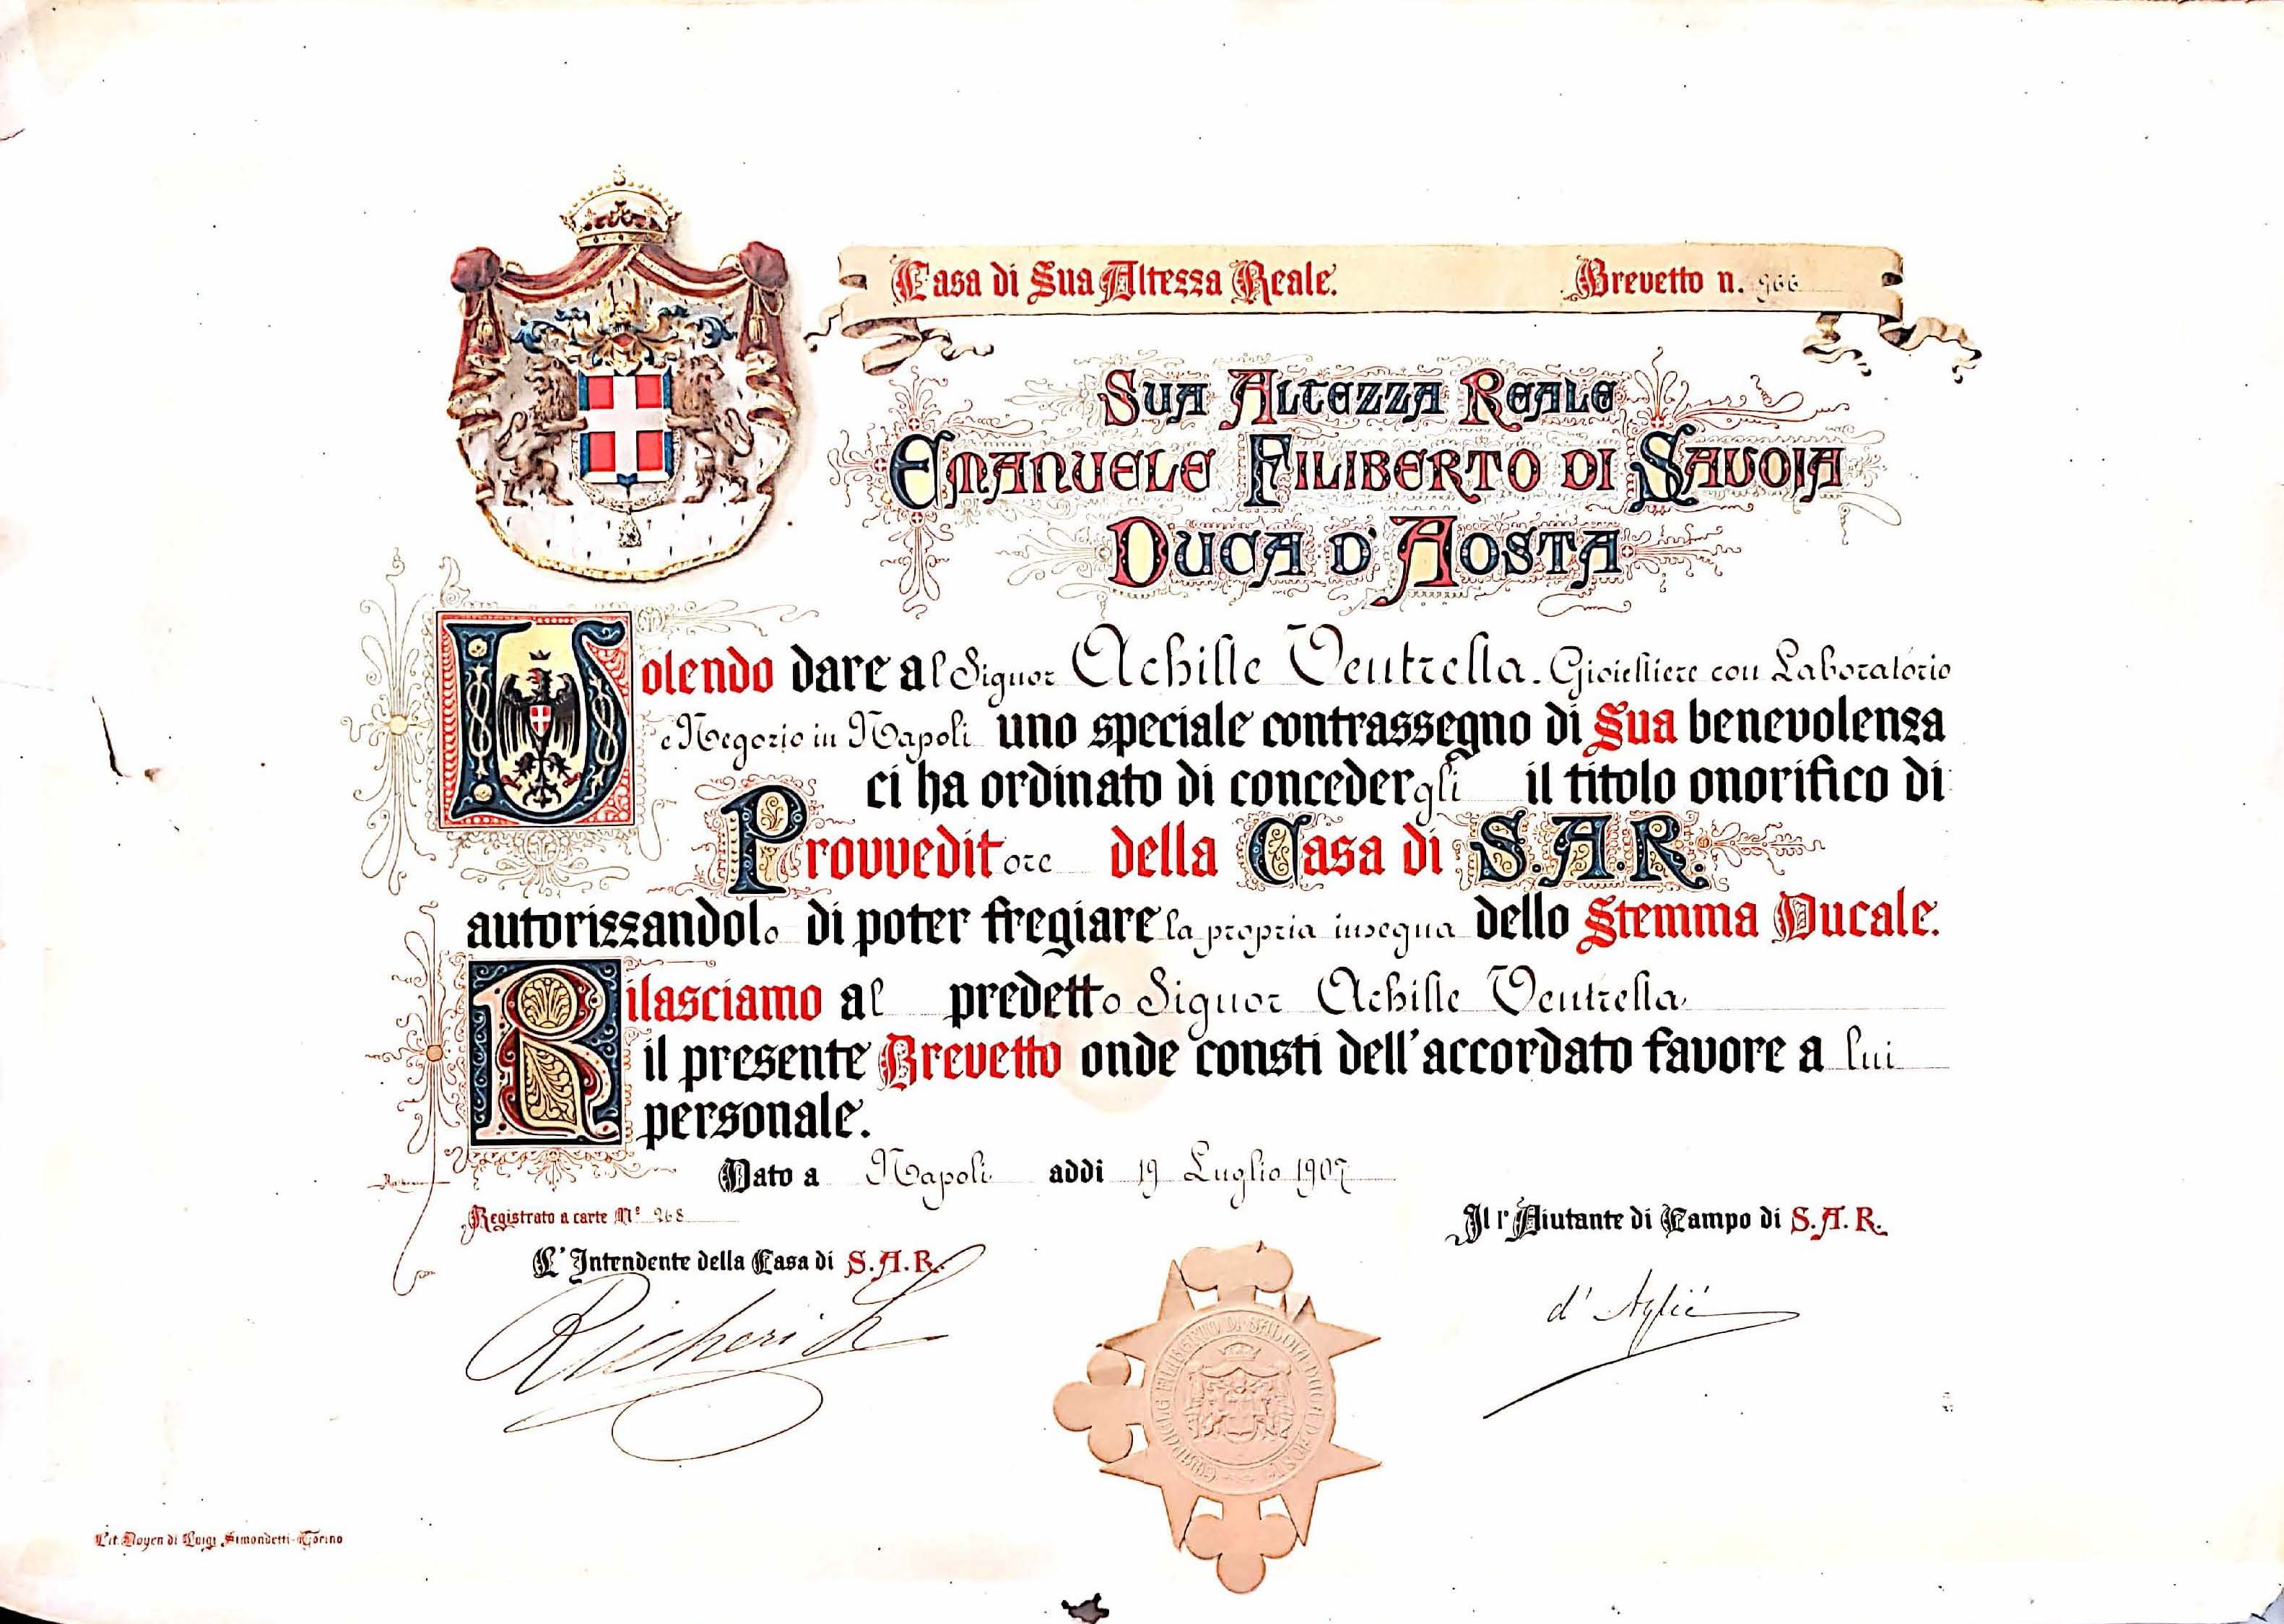 Casa di Sua Altezza Reale. Brevetto n. 966
SUA ALTEZZA REALE
EMANUELE FILIBERTO DI SAVOIA
DUCA D'AOSTA
Volendo dare al Signor Achille Ventrella. Gioielliere con Laboratorio
e Negozio in Napoli uno speciale contrassegno di Sua benevolenza
ci ha ordinato di concedergli il titolo onorifico di
Provveditore della Casa di S.A.R.
autorizzandolo di poter fregiare la propria insegna dello Stemma Ducale.
Rilasciamo al predetto Signor Achille Ventrella
il presente Brevetto onde consti dell'accordato favore a lui
personale.
Dato a Napoli addi 19 Luglio 1907
Registrato a carte N° 268
Il 1° Aiutante di Campo di S.A.R.
L'Intendente della Casa di S.A.R.
d'Aglié
EMANUELE FILIBERTO DI SAVOIA DUCA D'AOSTA
Lit. Doyen di Luigi Simondetti-Torino